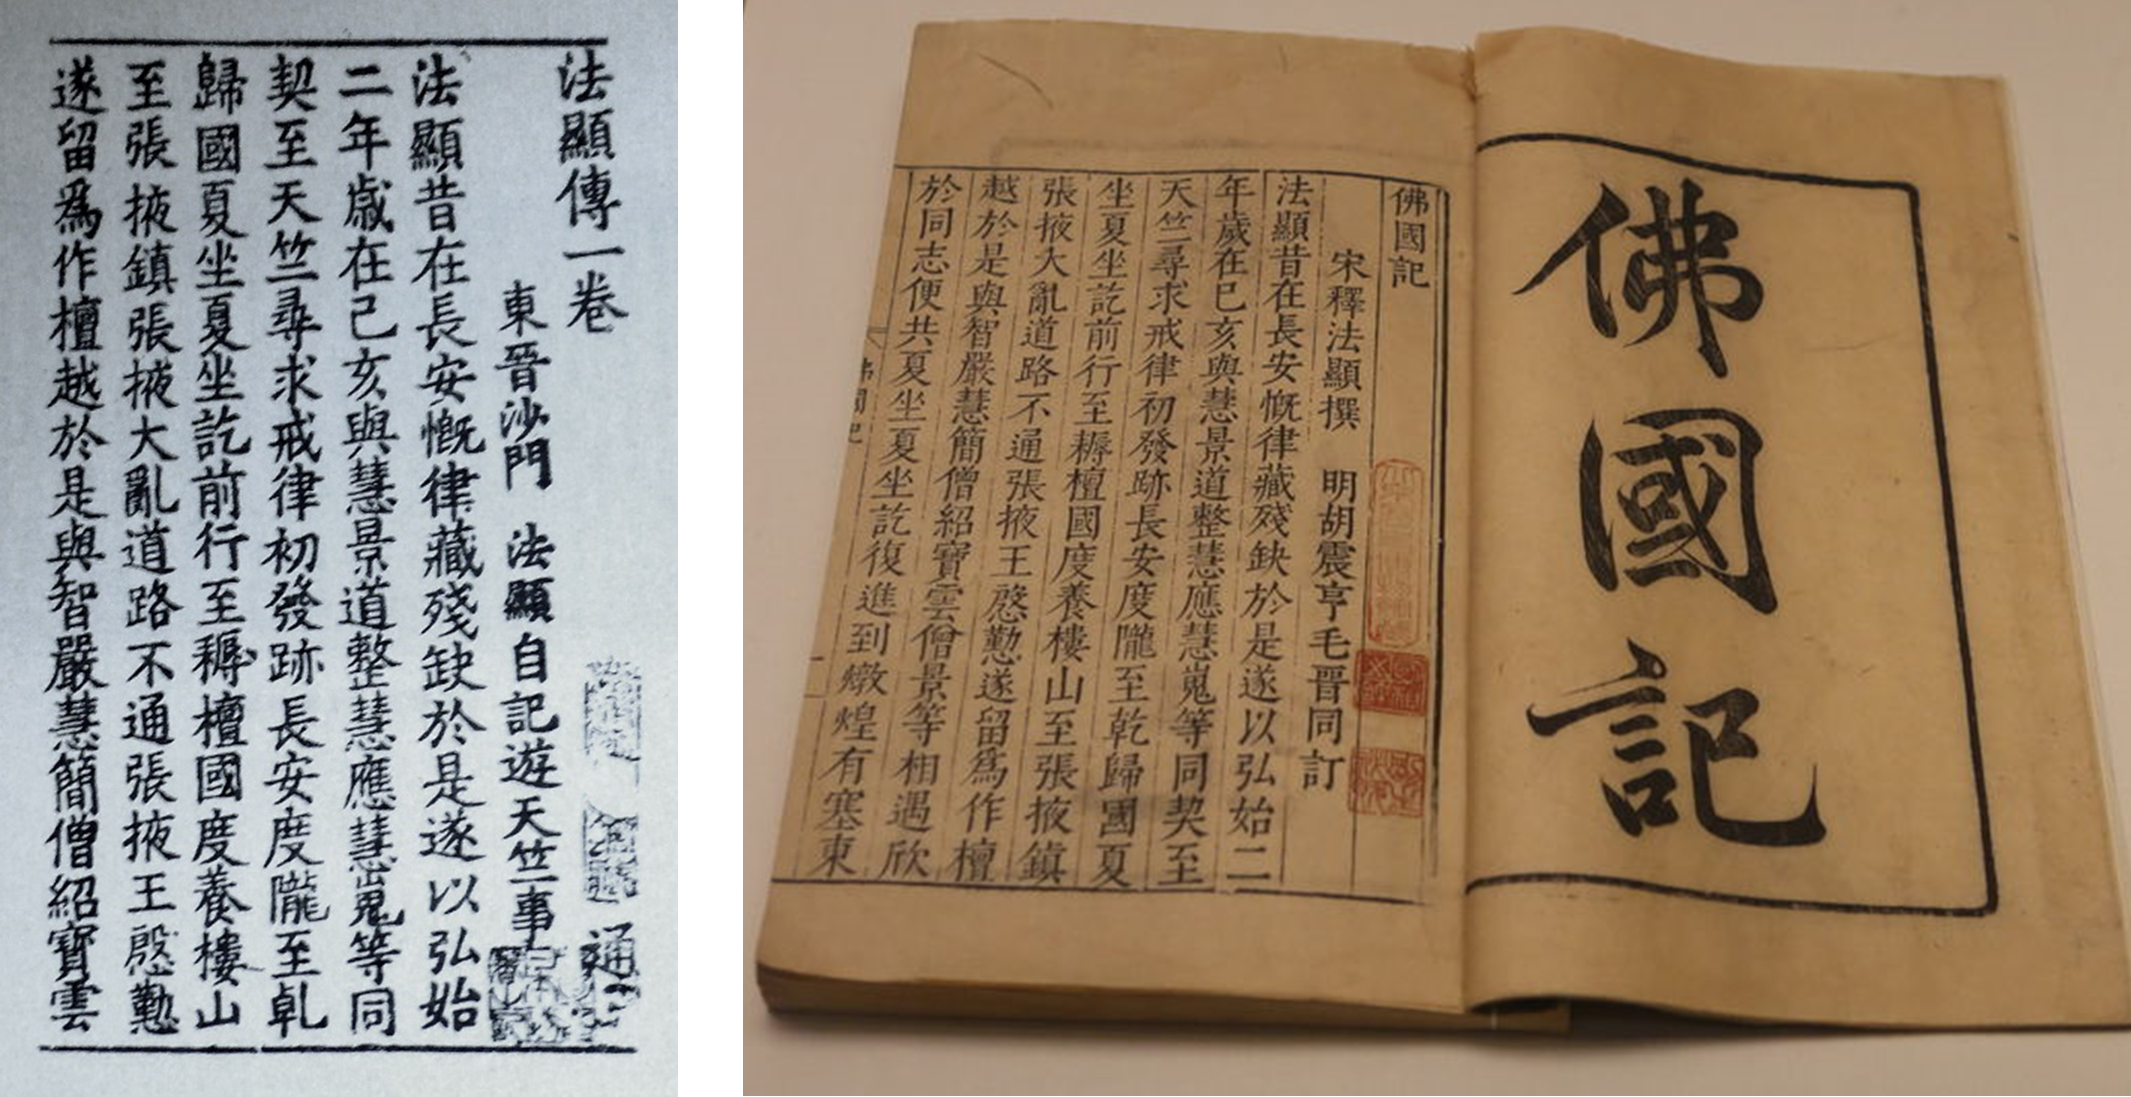 法顯傳一卷
東晉沙門 法顯自記遊天竺事
法顯昔在長安慨律藏殘缺於是遂以弘始
二年歲在己亥與慧景道整慧應慧嵬等同
契至天竺尋求戒律初發跡長安度隴至乹
歸國夏坐夏坐訖前行至耨檀國度養樓山
至張掖鎮張掖大亂道路不通張掖王慇懃
遂留爲作檀越於是與智嚴慧簡僧紹寶雲
佛國記
佛國記
宋釋法顯撰 明胡震亨毛晋同訂
法顯昔在長安慨律藏殘缺於是遂以弘始二
年歲在已亥與慧景道整慧應慧嵬等同契至
天竺尋求戒律初發跡長安度隴至乾歸國夏
坐夏坐訖前行至耨檀國度養樓山至張掖鎮
張掖大亂道路不通張掖王慇懃遂留爲作檀
越於是與智嚴慧簡僧紹寶雲僧景等相遇欣
於同志便共夏坐夏坐訖復進到燉煌有塞東